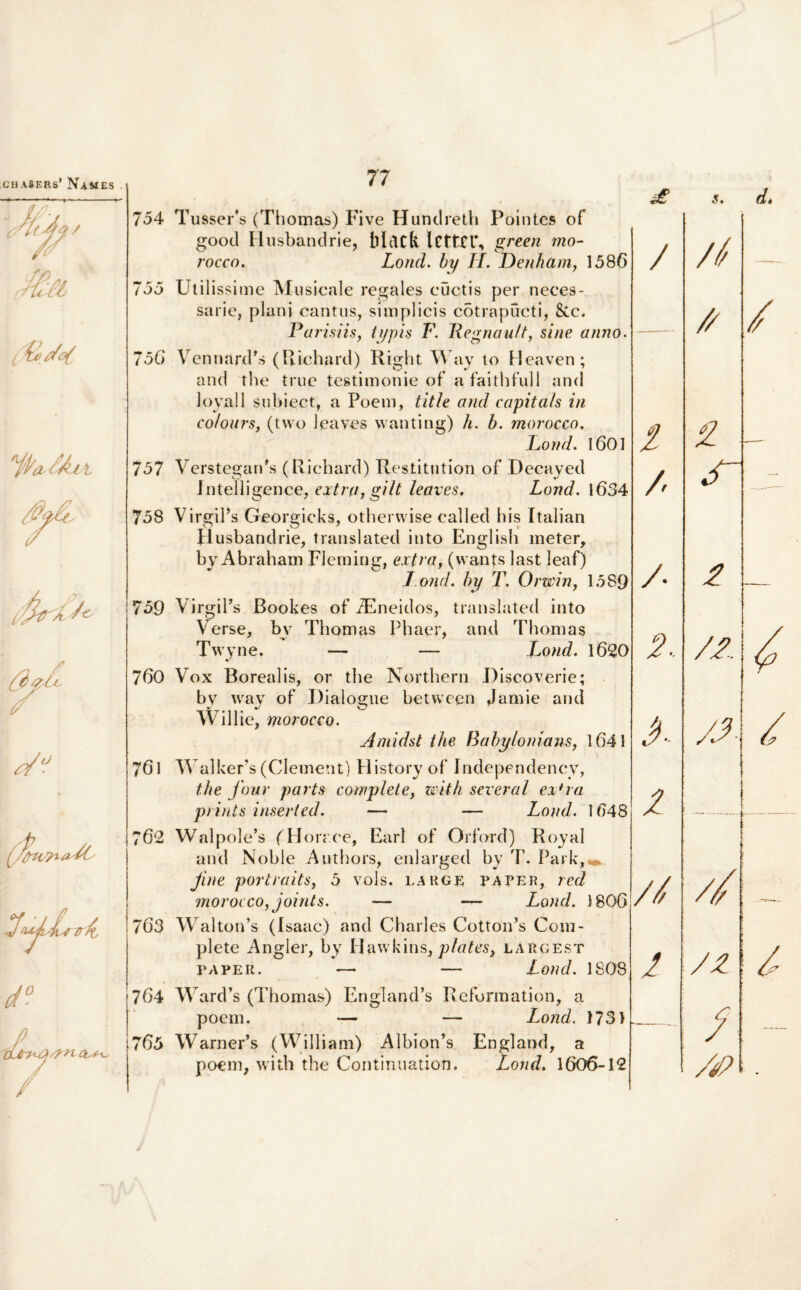 77
CHASERS' NAMES .
£ s. d.
754 Tusser's (Thomas) Five Hundreth Pointes of
good Husbandrie, black letter, green mo-
rocco. Lond. by H. Denham, 1586
1 11 —
755 Utilissime Musicale regales cūctis per neces-
sarie, plani cantus, simplicis cōtrapūcti, &c.
Parisiis, typis F. Regnault, sine anno.
— 11 6
756 Vennard's (Richard) Right Way to Heaven;
and the true testimonie of a faithfull and
loyall subiect, a Poem, title and capitals in
colours, (two leaves wanting) h. b. morocco.
Lond. 1601
2 2 —
757 Verstegan's (Richard) Restitution of Decayed
Intelligence, extra, gilt leaves. Lond. 1634
1 5 —
758 Virgil's Georgicks, otherwise called his Italian
Husbandrie, translated into English meter,
by Abraham Fleming, extra, (wants last leaf)
Lond. by T. Orwin, 1589
1. 2 —
759 Virgil's Bookes of Æneidos, translated into
Verse, by Thomas Phaer, and Thomas
Twyne. — — Lond. 1620
2. 12. 6
760 Vox Borealis, or the Northern Discoverie;
by way of Dialogue between Jamie and
Willie, morocco.
Amidst the Babylonians, 1641
3. 13. 6
761 Walker's (Clement) History of Independency,
the four parts complete, with several extra
prints inserted. — — Lond. 1648
2 — —
762 Walpole's (Horace, Earl of Orford) Royal
and Noble Authors, enlarged by T. Park,
fine portraits, 5 vols. LARGE PAPER, red
morocco, joints. — — Lond. 1806
11 11 —
763 Walton's (Isaac) and Charles Cotton's Com-
plete Angler, by Hawkins, plates, LARGEST
PAPER. — — Lond. 1808
1 12 6
764 Ward's (Thomas) England's Reformation, a
poem. — — Lond. 1731
— 7 —
765 Warner's (William) Albion's England, a
poem, with the Continuation. Lond. 1606-12
10 .